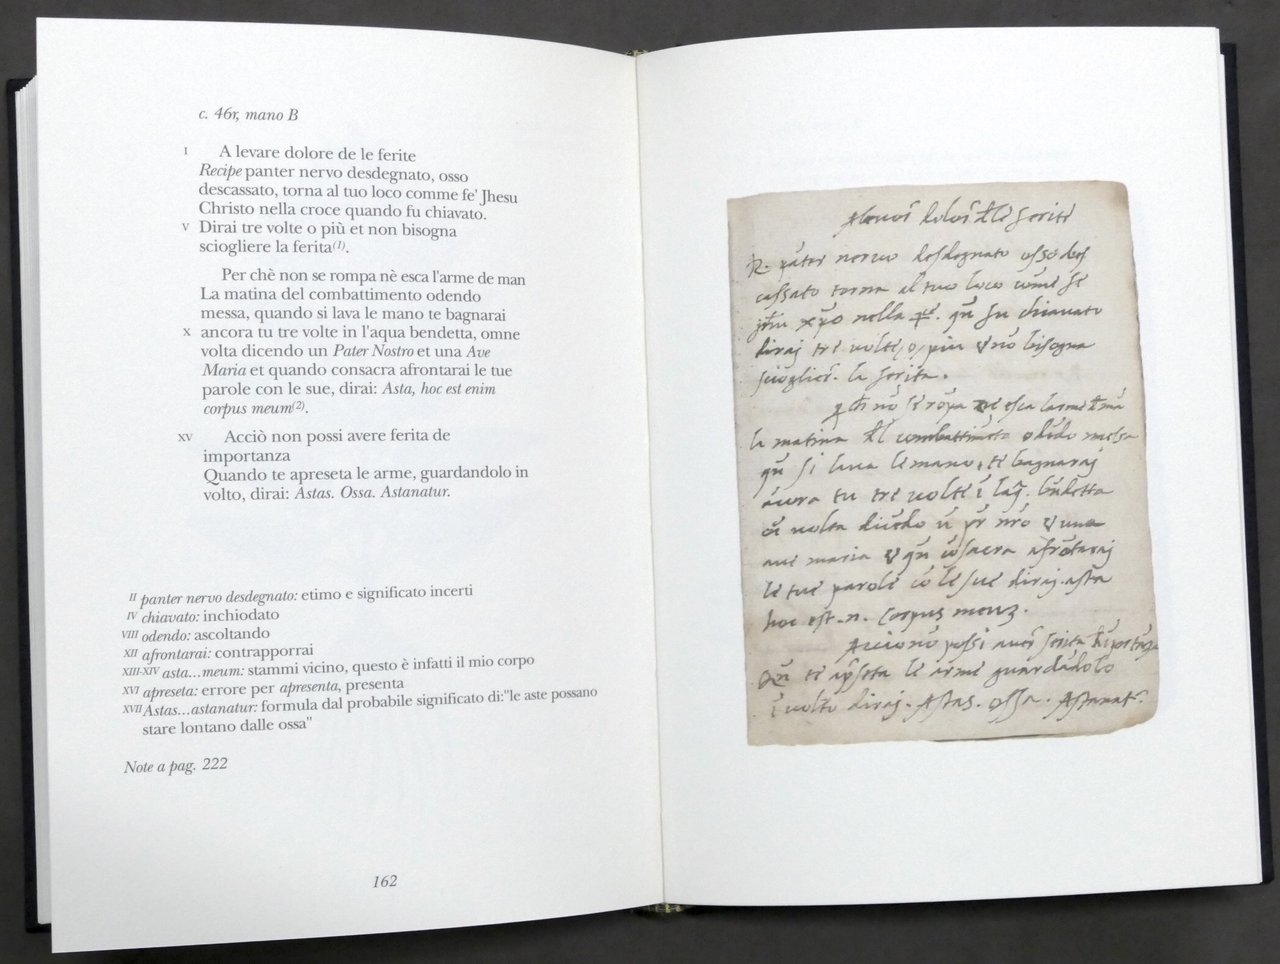 c. 46r, mano B
I A levare dolore de le ferite
Recipe panter nervo desdegnato, osso
descassato, torna al tuo loco comme fe' Jhesu
Christo nella croce quando fu chiavato.
V Dirai tre volte o più et non bisogna
sciogliere la ferita(1).
Per chè non se rompa nè esca l'arme de man
La matina del combattimento odendo
messa, quando si lava le mano te bagnarai
X ancora tu tre volte in l'aqua bendetta, omne
volta dicendo un Pater Nostro et una Ave
Maria et quando consacra afrontarai le tue
parole con le sue, dirai: Asta, hoc est enim
corpus meum(2).
XV Acciò non possi avere ferita de
importanza
Quando te apreseta le arme, guardandolo in
volto, dirai: Astas. Ossa. Astanatur.
II panter nervo desdegnato: etimo e significato incerti
IV chiavato: inchiodato
VIII odendo: ascoltando
XII afrontarai: contrapporrai
XIII-XIV asta...meum: stammi vicino, questo è infatti il mio corpo
XVI apreseta: errore per apresenta, presenta
XVII Astas...astanatur: formula dal probabile significato di:"le aste possano
stare lontano dalle ossa"
Note a pag. 222
162
dolor
nervo desdegnato osso des
cassato torna al tuo loco come fe
nella chiavato
diraj tre volte, o, piu bisogna
la ferita.
la matina combattimeto odedo messa
si lava le mano, te bagnaraj
tu tre volte
volta una
ave maria afrotaraj
le tue parole le sue diraj. asta
hoc est .n. corpus
possi ferita
te le arme guardadolo
volto diraj. Astas. ossa.